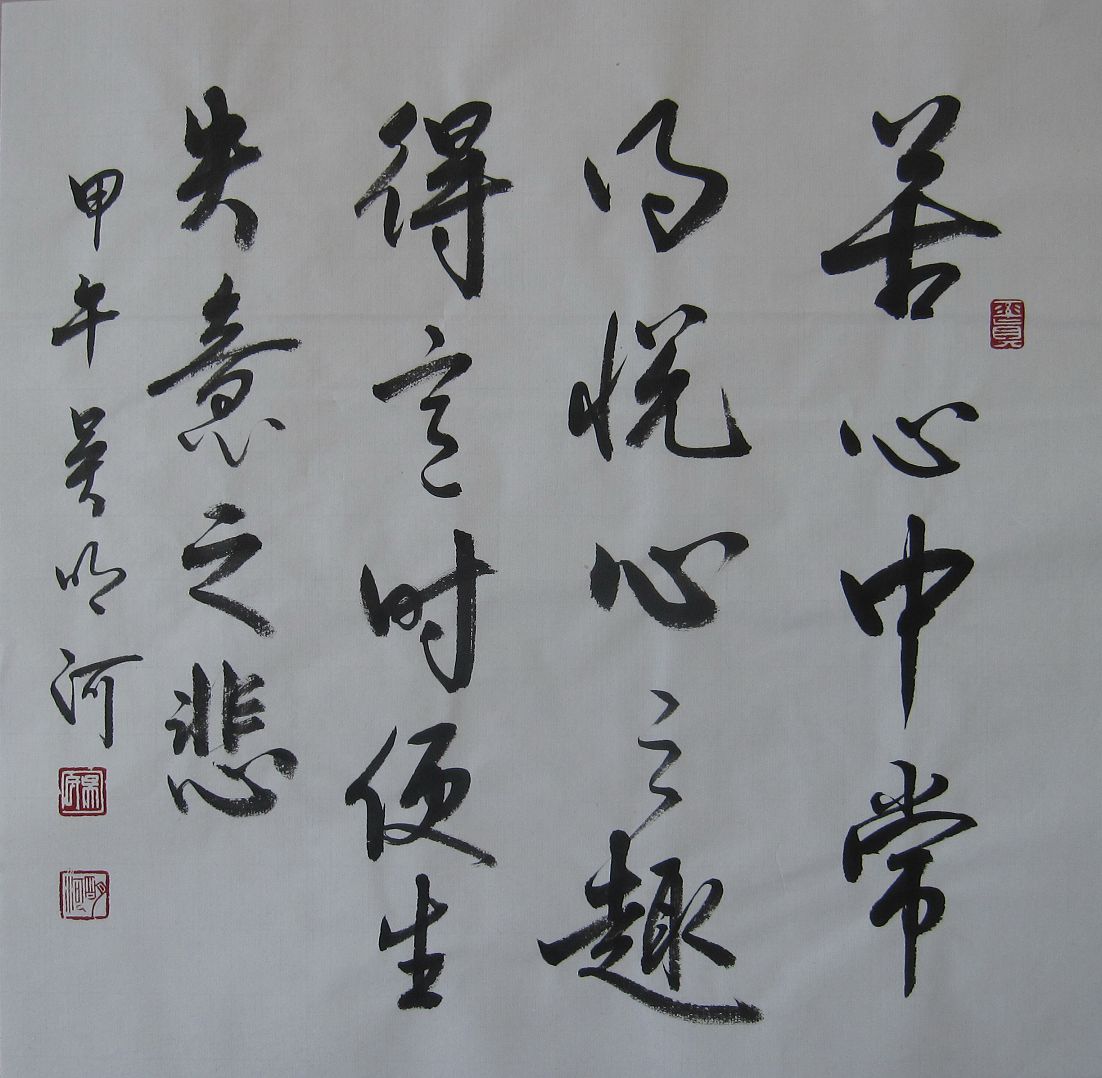 苦心中常
得悦心之趣
得意时便生
失意之悲
甲午吴明河
明河